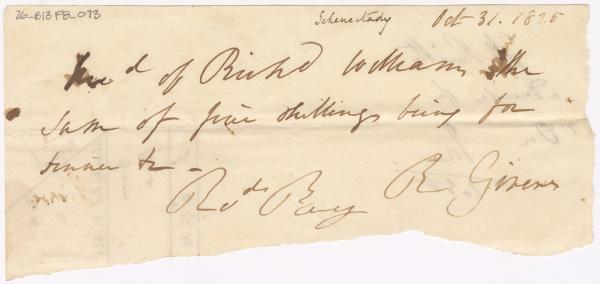 26-B13F8-073
Schenectady Oct 31. 1825
Rec'd of Rich'd Williams the
sum of five shillings being for
dinner &c -
Rec'd Pay R Givens